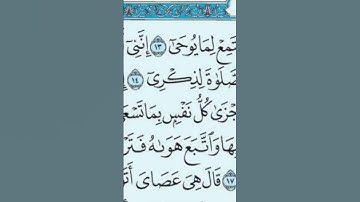 تَمِعْ لِمَا يُوحَىٰٓ ١٣ إِنَّنِىٓ
صَّلَوٰةَ لِذِكْرِىٓ ١٤
جْزَىٰ كُلُّ نَفْسٍۭ بِمَا تَسْعَ
هَا وَٱتَّبَعَ هَوَىٰهُ فَتَرْ
١٧ قَالَ هِىَ عَصَاىَ أَتَ